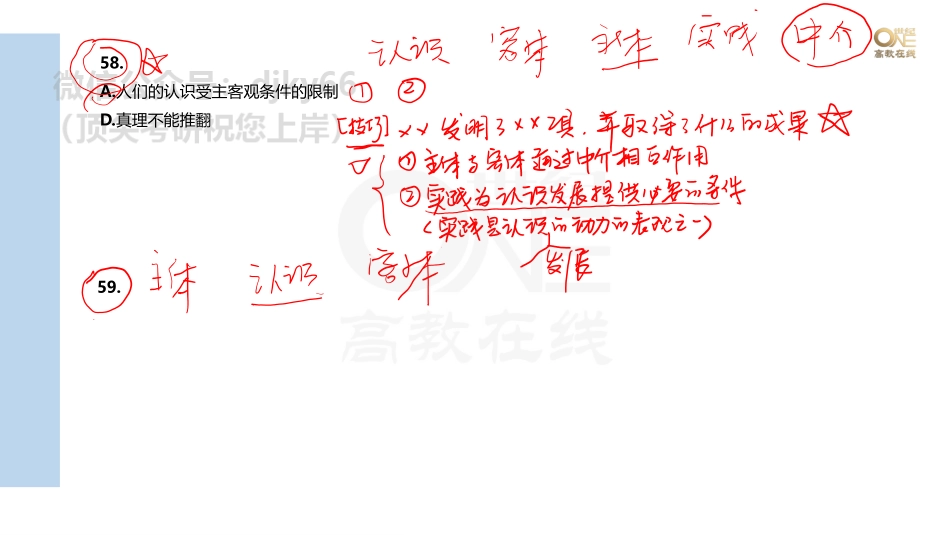 认识 客体 主体 实践 中介
ONE
高教在线
58.
A.人们的认识受主客观条件的限制 ① ②
D.真理不能推翻
(顶尖考研祝您上岸)
[技巧] ××发明了××项,并取得了什么的成果
①主体与客体通过中介相互作用
②实践为认识发展提供必要的条件
(实践是认识的动力的表现之一)
发展
59. 主体 认识 客体
ONE
高教在线